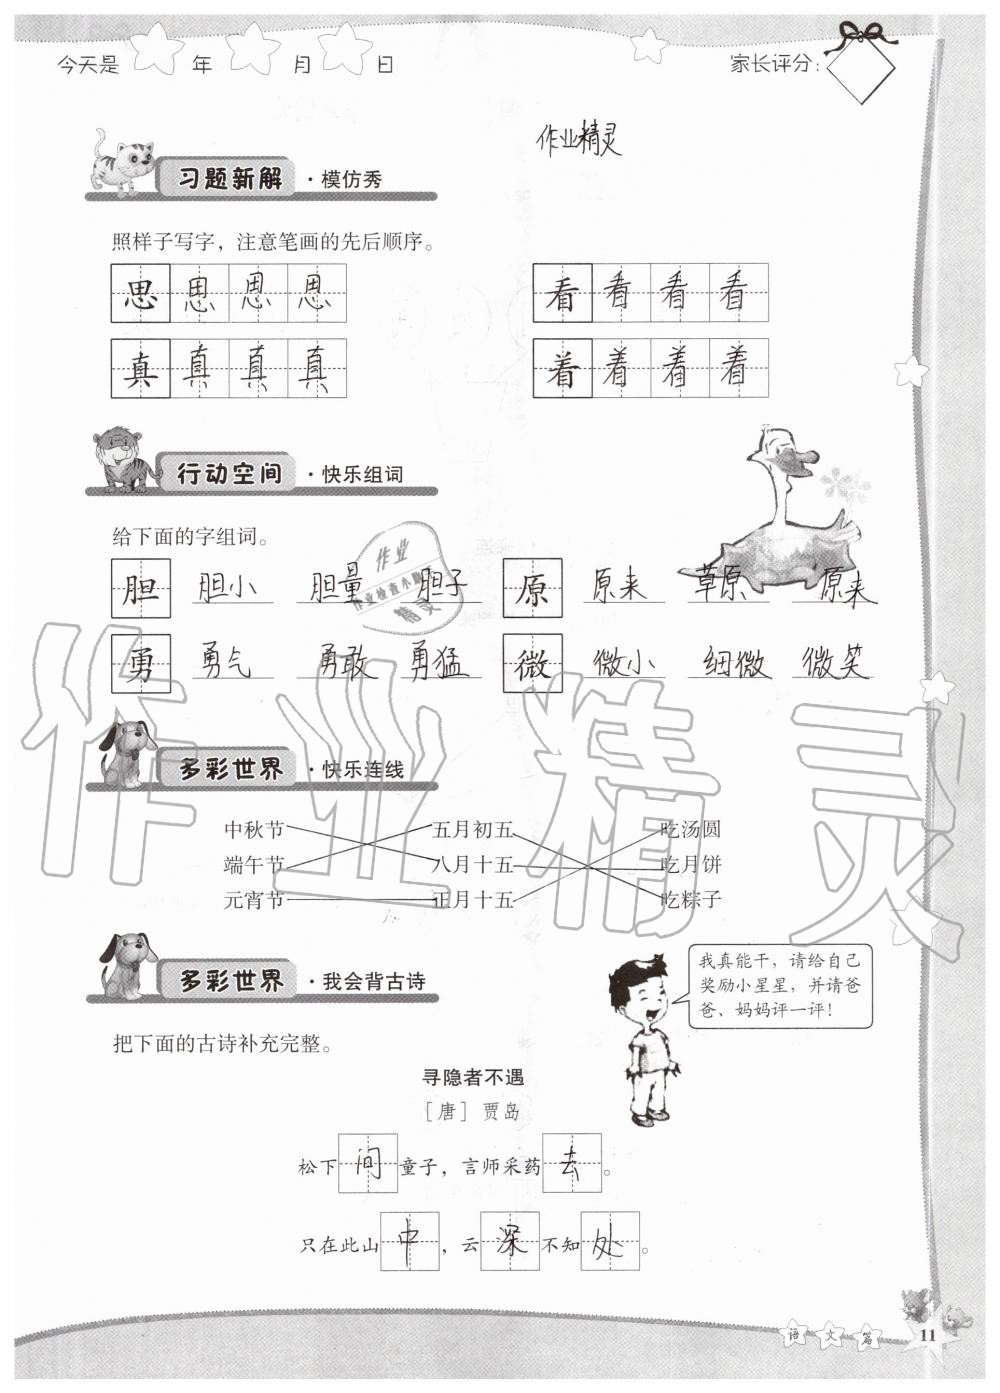 今天是 年 月 日 家长评分：
作业精灵
习题新解 ·模仿秀
照样子写字，注意笔画的先后顺序。
思 思 思 思 看 看 看 看
真 真 真 真 着 着 着 着
行动空间 ·快乐组词
给下面的字组词。
作业
作业检查小助手
精灵
胆 胆小 胆量 胆子 原 原来 草原 原来
勇 勇气 勇敢 勇猛 微 微小 细微 微笑
作业精灵
多彩世界 ·快乐连线
中秋节 五月初五 吃汤圆
端午节 八月十五 吃月饼
元宵节 正月十五 吃粽子
多彩世界 ·我会背古诗
我真能干，请给自己
奖励小星星，并请爸
爸、妈妈评一评！
把下面的古诗补充完整。
寻隐者不遇
［唐］贾岛
松下问童子，言师采药去。
只在此山中，云深不知处。
语文篇 11